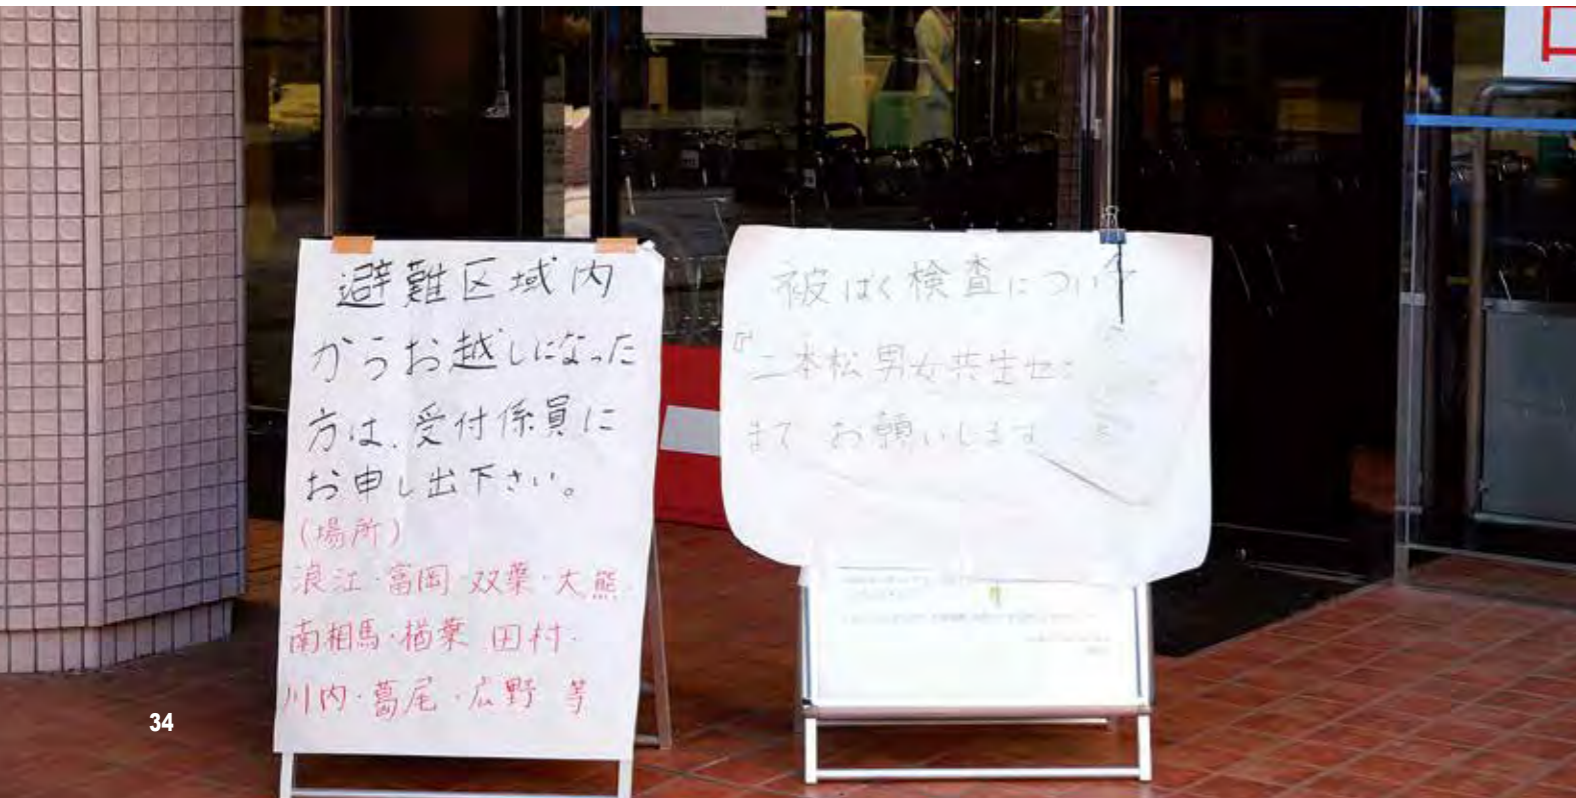 避難区域内
からお越しになった
方は、受付係員に
お申し出下さい。
(場所)
浪江・富岡・双葉・大熊・
南相馬・楢葉 田村・
川内・葛尾・広野 等
被ばく検査につい
二本松男女共生セ
まで お願いします
34